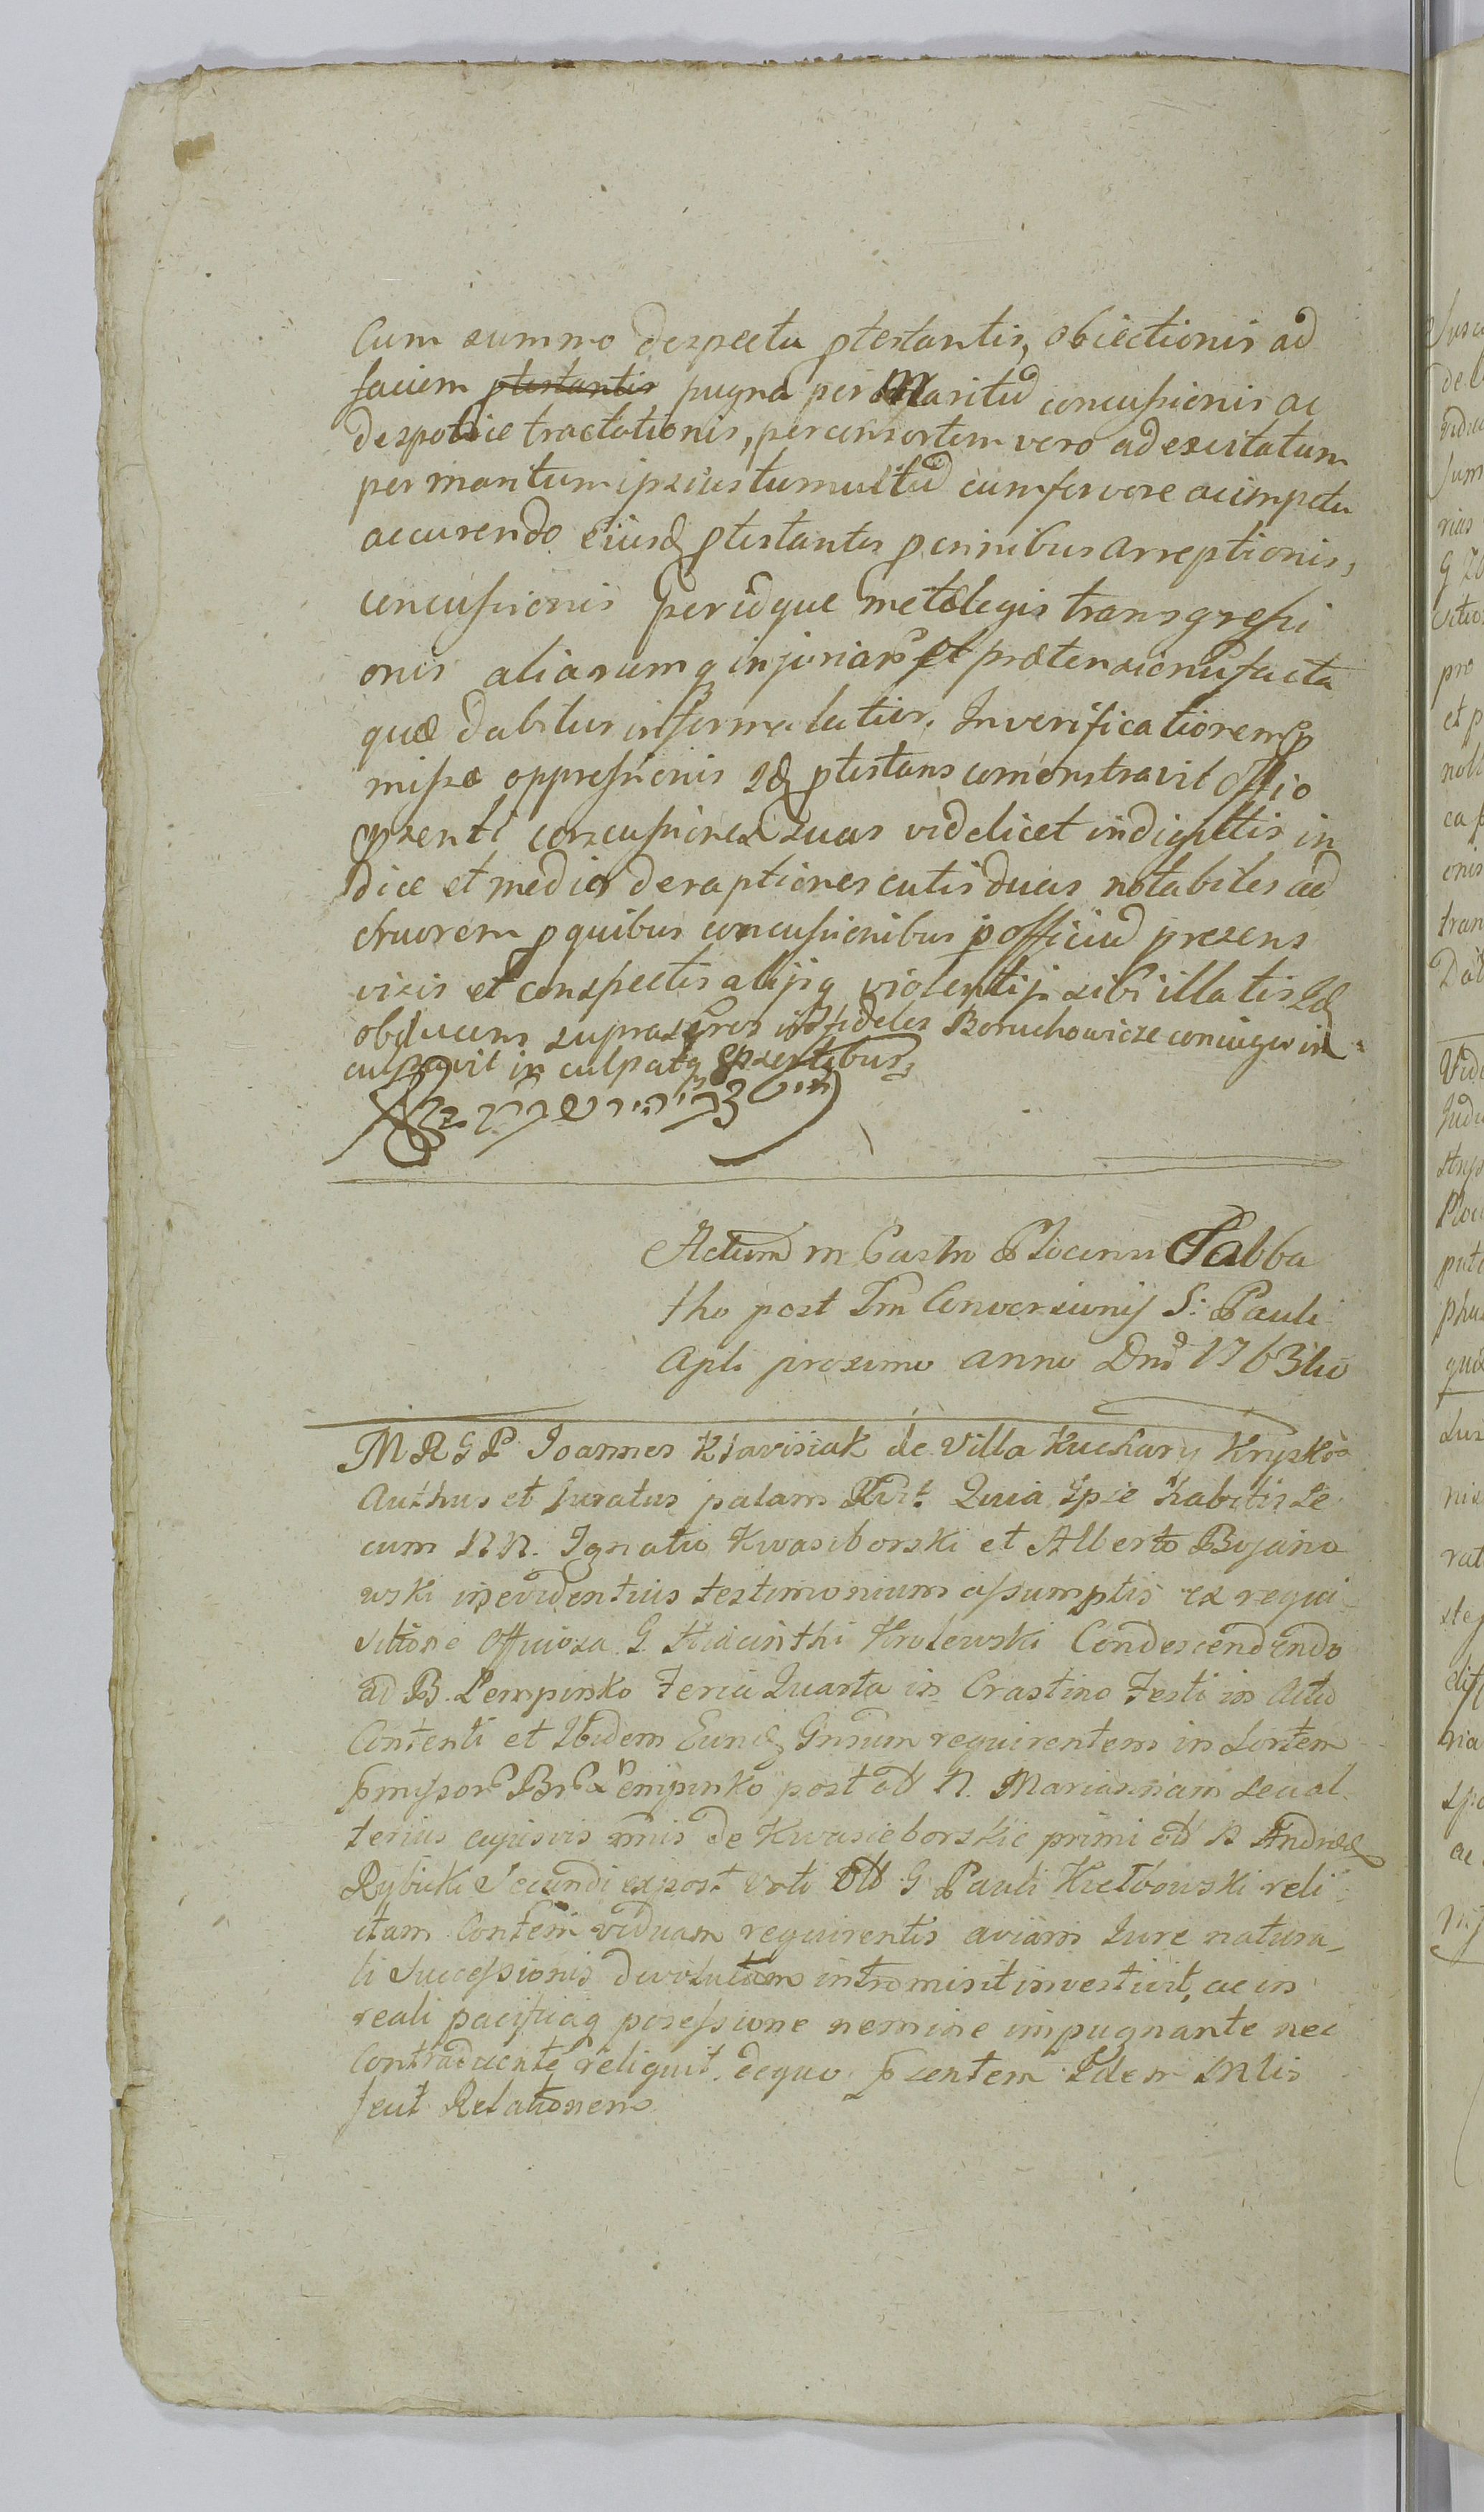 Cum summo despectu ptestantis, obiectionis ad
faciem ptestantis pugna per Maritu concussionis ac
despotice tractationis, per consortem vero ad excitatum
per maritum ipsius tumultu cum fervore ac impetu
accurendo eiusd ptestantis p crinibus arreptionis,
concussionis per idque metæ legis transgressi
onis aliarumq injuriar et prætensionu facta
quæ dabitur in forma latior. In verificationem p
missæ oppressionis Id ptestans comonstravit offio
psenti concussiones suas videlicet in digitis in
dice et medio deraptiones cutis duas notabiles ad
cruorem p quibus concussionibus p officiu presens
visis et conspectis alijsq violentijs sibi illatis Id
obducens suprascros infideles Boruchowicze coniuges in
culpavit in culpatq psentibus
Actum in Castro Plocensi Sabba
tho post Fm Conversionis S: Pauli
Apli proximo anno Dni 1763tio
MRGP Joannes Klavisiak de Villa Kuchary Krysko
Authus et Juratus palam Rt. Quia Ipse habitis se
cum NN. Ignatio Kwasiborski et Alberto Bojano
wski in evidentius testimonium assumptis ex requi
sitione officiosa G. Hiacinthi Krolewski Condescendendo
ad B. Lempinko Feria Quarta in Crastino Festi in Actu
Contenti et Ibidem Eund Gnsum requirentem in Sortem
pmissor Br Lempinko post od N. Mariannam seu al
terius cujusvis nnis de Kwasieborskie primi od N Andreæ
Rybicki Secundi expost vrti Od G Pauli Kielbowski reli
ctam Contem viduam requirentis aviam Jure natura
li Successionis devolutam intromisit investivit, ac in
reali pacificaq possessione nemine impugnante nec
Contradicente reliquit. dequo psentem Idem Mlis
fecit Relationem